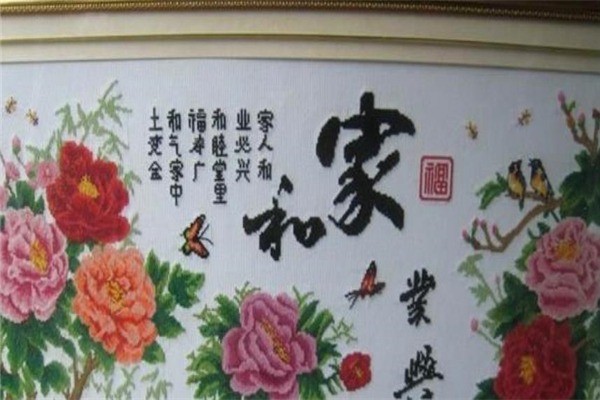 家和
業興
福
家人和
业必兴
和睦堂里
福寿广
和气家中
土变金